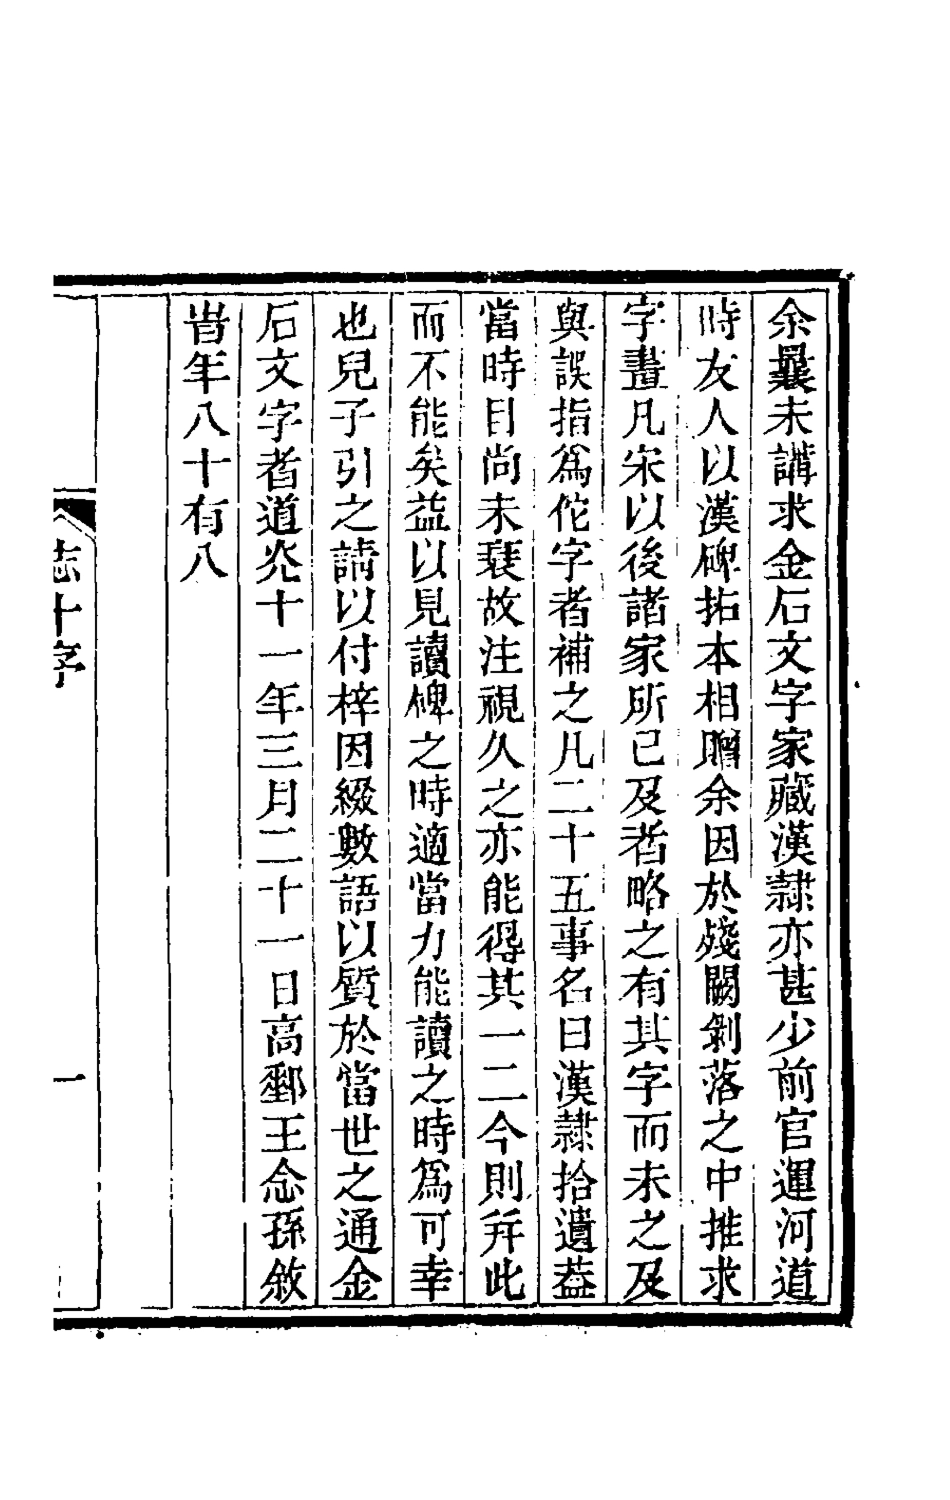 余曩未講求金石文字家藏漢隸亦甚少前官運河道
時友人以漢碑拓本相贈余因於殘闕剝落之中推求
字畫凡宋以後諸家所已及者略之有其字而未之及
與誤指爲佗字者補之凡二十五事名曰漢隸拾遺葢
當時目尚未衰故注視久之亦能得其一二今則幷此
而不能矣益以見讀碑之時適當力能讀之時爲可幸
也兒子引之請以付梓因綴數語以質於當世之通金
石文字者道光十一年三月二十一日高郵王念孫敘
旹年八十有八
志十序
一